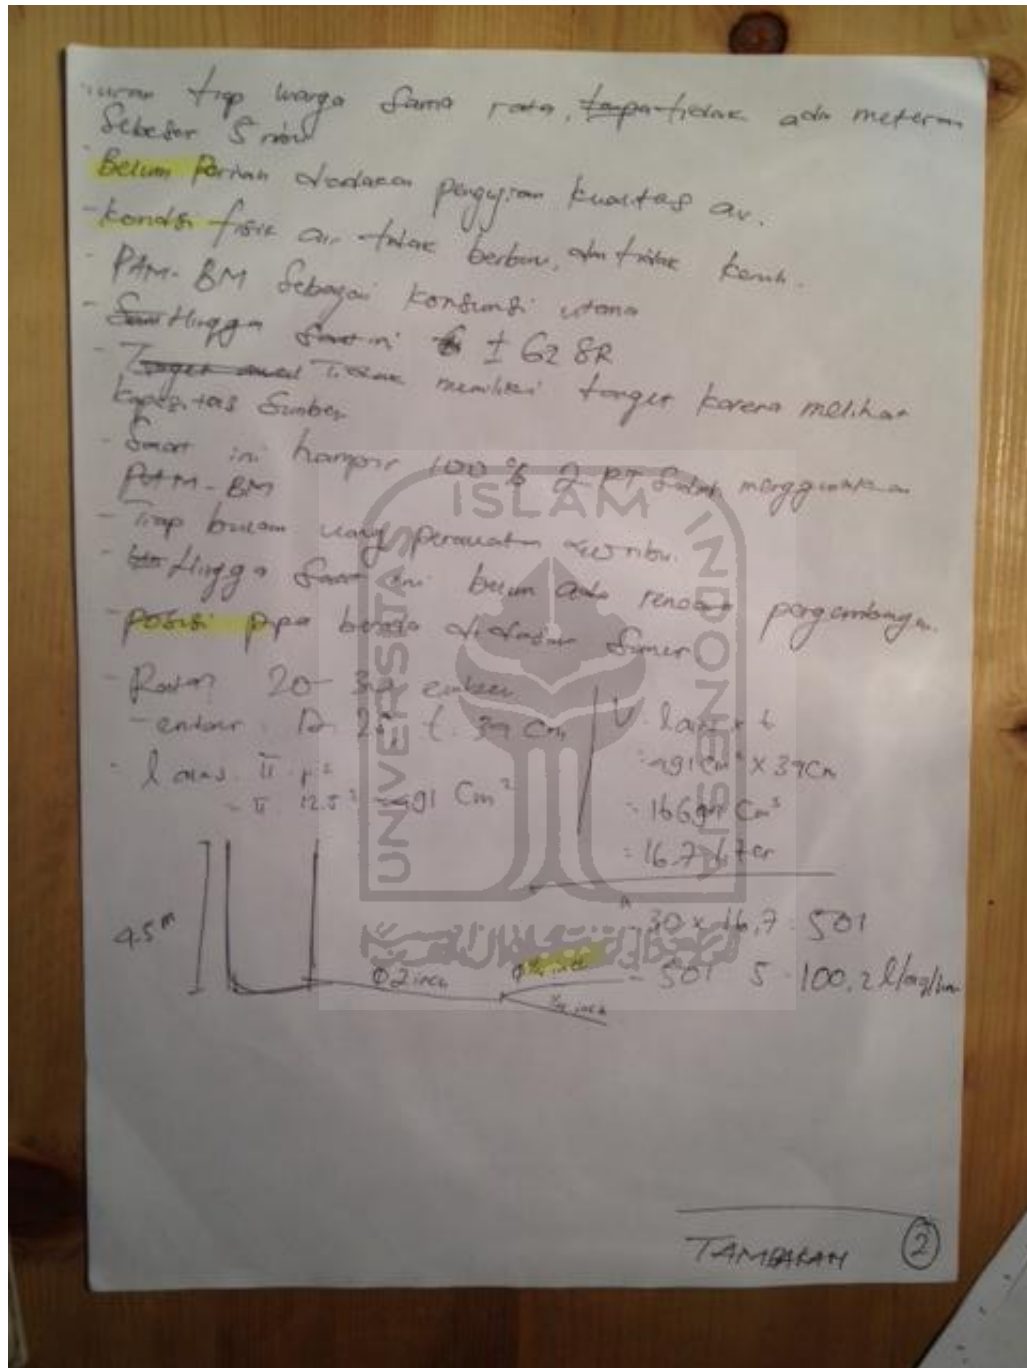 iuran tiap warga sama rata, tanpa tidak ada meteran
sebesar 5 ribu
- Belum pernah diadakan pengujian kualitas air.
- Kondisi fisik air tidak berbau, dan tidak keruh.
- PAM-BM sebagai konsumsi utama
- Hingga saat ini ± 62 SR
- Tidak memiliki target karena melihat
kapasitas sumber
- Saat ini hampir 100% 2 RT sudah menggunakan
PAM-BM
- Tiap bulan uang perawatan ribu.
- Hingga saat ini belum ada rencana pengembangan.
- Posisi pipa berada didasar sumur
- Rata² 20-30 ember
- ember D 25, t. 39 cm
- luas π r²
= π 12.5² = 491 cm²
V. luas x t
= 491 cm² x 39 cm
cm³
= 16.7 liter
- 30 x 16,7 = 501
- 501 5 = 100,2 l/org/hari
4.5 m
Ø 2 inch
Ø ¾ inch
¾ inch
TAMBAKAN
2
UNIVERSITAS ISLAM INDONESIA